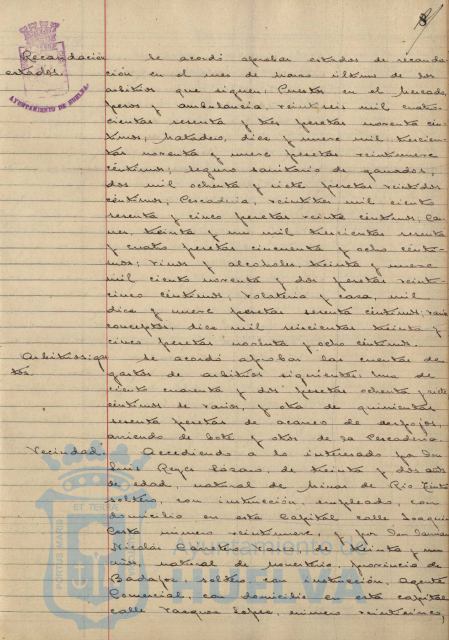 8
Recaudación
estados.
Se acordó aprobar estados de recauda-
ción en el mes de Marzo último de los
arbitrios que siguen: Puestos en el Mercado,
pesos y ambulancia, veintiseis mil cuatro-
cientas sesenta y tres pesetas noventa cén-
timos; Matadero, diez y nueve mil trescien-
tas noventa y nueve pesetas veintinueve
céntimos; seguro sanitario de ganados,
dos mil ochenta y siete pesetas veintidos
céntimos; Pescadería, veintitres mil ciento
sesenta y cinco pesetas veinte céntimos; Car-
nes, treinta y un mil trescientas sesenta
y cuatro pesetas cincuenta y ocho cénti-
mos; vinos y alcoholes, treinta y nueve
mil ciento noventa y dos pesetas veinti-
cinco céntimos; volatería y caza, mil
diez y nueve pesetas sesenta céntimos; varios
conceptos, diez mil seiscientas treinta y
cinco pesetas noventa y ocho céntimos.
Arbitrios: gas-
tos.
Se acordó aprobar las cuentas de
gastos de arbitrios siguientes: Una de
ciento cuarenta y dos pesetas ochenta y siete
céntimos de varios, y otra de quinientas
sesenta pesetas de acarreo de despojos,
arriendo de bote y otros de la Pescadería.
Vecindad.
Accediendo a lo interesado por Don
Luis Reyes Lózaro, de treinta y dos años
de edad, natural de Minas de Rio Tinto
soltero, con instrucción, empleado, con
domicilio en esta Capital calle Joaquin
Costa número veintinueve, y por Don
Nicolás, de treinta y un
años, natural de Monesterio, provincia de
Badajoz, soltero, con instrucción, Agente
Comercial, con domicilio en esta capital
calle Vazquez Lopez, número veinticinco,
AYUNTAMIENTO DE HUELVA
PORTUS MARIS ET TERRAE
Ayuntamiento de
HUELVA